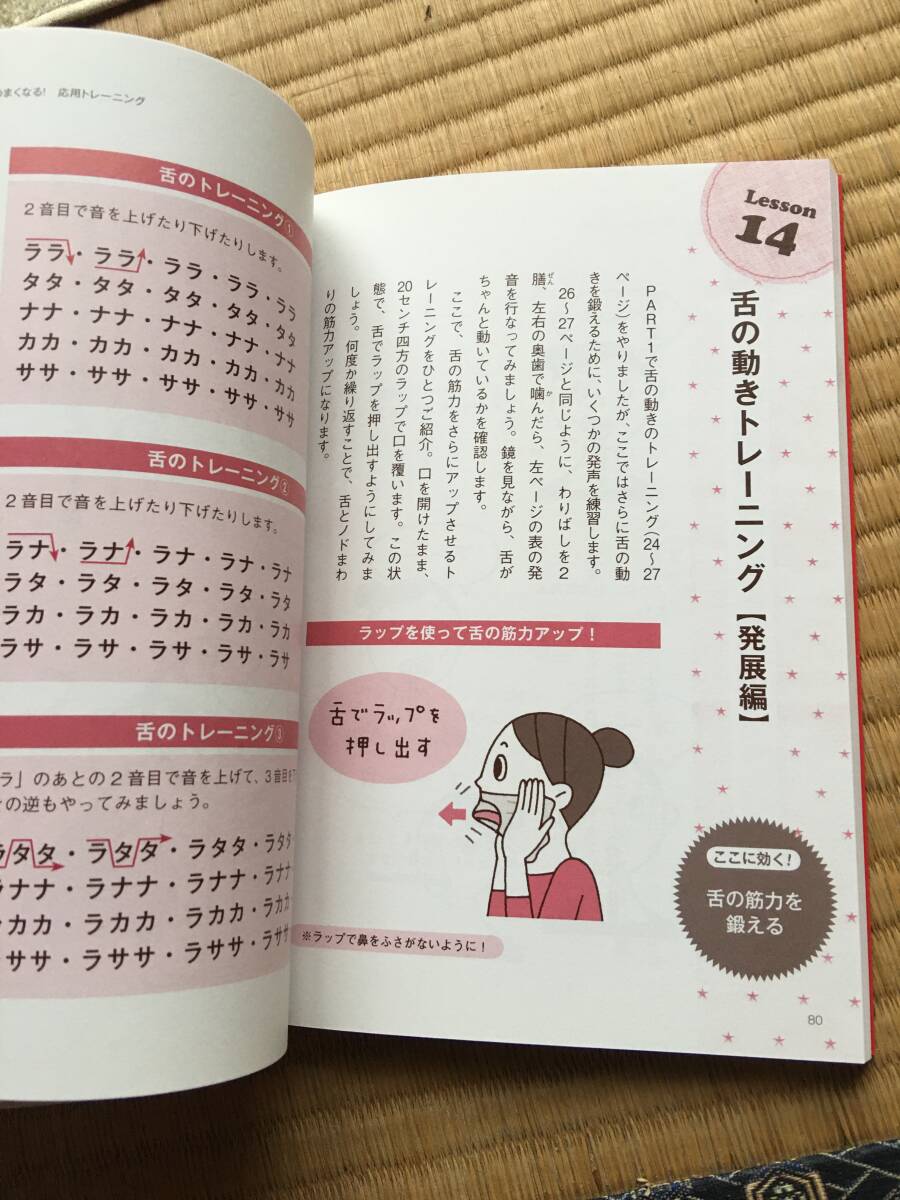 Lesson
14
舌の動きトレーニング【発展編】
PART1で舌の動きのトレーニング(24〜27
ページ)をやりましたが、ここではさらに舌の動
きを鍛えるために、いくつかの発声を練習します。
26〜27ページと同じように、わりばしを2
膳、左右の奥歯で噛んだら、左ページの表の発
ぜん
か
音を行なってみましょう。鏡を見ながら、舌が
ちゃんと動いているかを確認します。
ここで、舌の筋力をさらにアップさせるト
レーニングをひとつご紹介。口を開けたまま、
20センチ四方のラップで口を覆います。この状
態で、舌でラップを押し出すようにしてみま
しょう。何度か繰り返すことで、舌とノドまわ
りの筋力アップになります。
ラップを使って舌の筋力アップ!
舌でラップを
押し出す
※ラップで鼻をふさがないように!
ここに効く!
舌の筋力を
鍛える
80
まくなる! 応用トレーニング
舌のトレーニング①
2音目で音を上げたり下げたりします。
ララ・ララ・ララ・ララ・ララ
タタ・タタ・タタ・タタ・タタ
ナナ・ナナ・ナナ・ナナ・ナナ
カカ・カカ・カカ・カカ・カカ
ササ・ササ・ササ・ササ・ササ
舌のトレーニング②
2音目で音を上げたり下げたりします。
ラナ・ラナ・ラナ・ラナ・ラナ
ラタ・ラタ・ラタ・ラタ・ラタ
ラカ・ラカ・ラカ・ラカ・ラカ
ラサ・ラサ・ラサ・ラサ・ラサ
舌のトレーニング③
ラ」のあとの2音目で音を上げて、3音目を
の逆もやってみましょう。
ラタタ・ラタタ・ラタタ・ラタタ
ラナナ・ラナナ・ラナナ・ラナナ
ラカカ・ラカカ・ラカカ・ラカカ
ラササ・ラササ・ラササ・ラササ